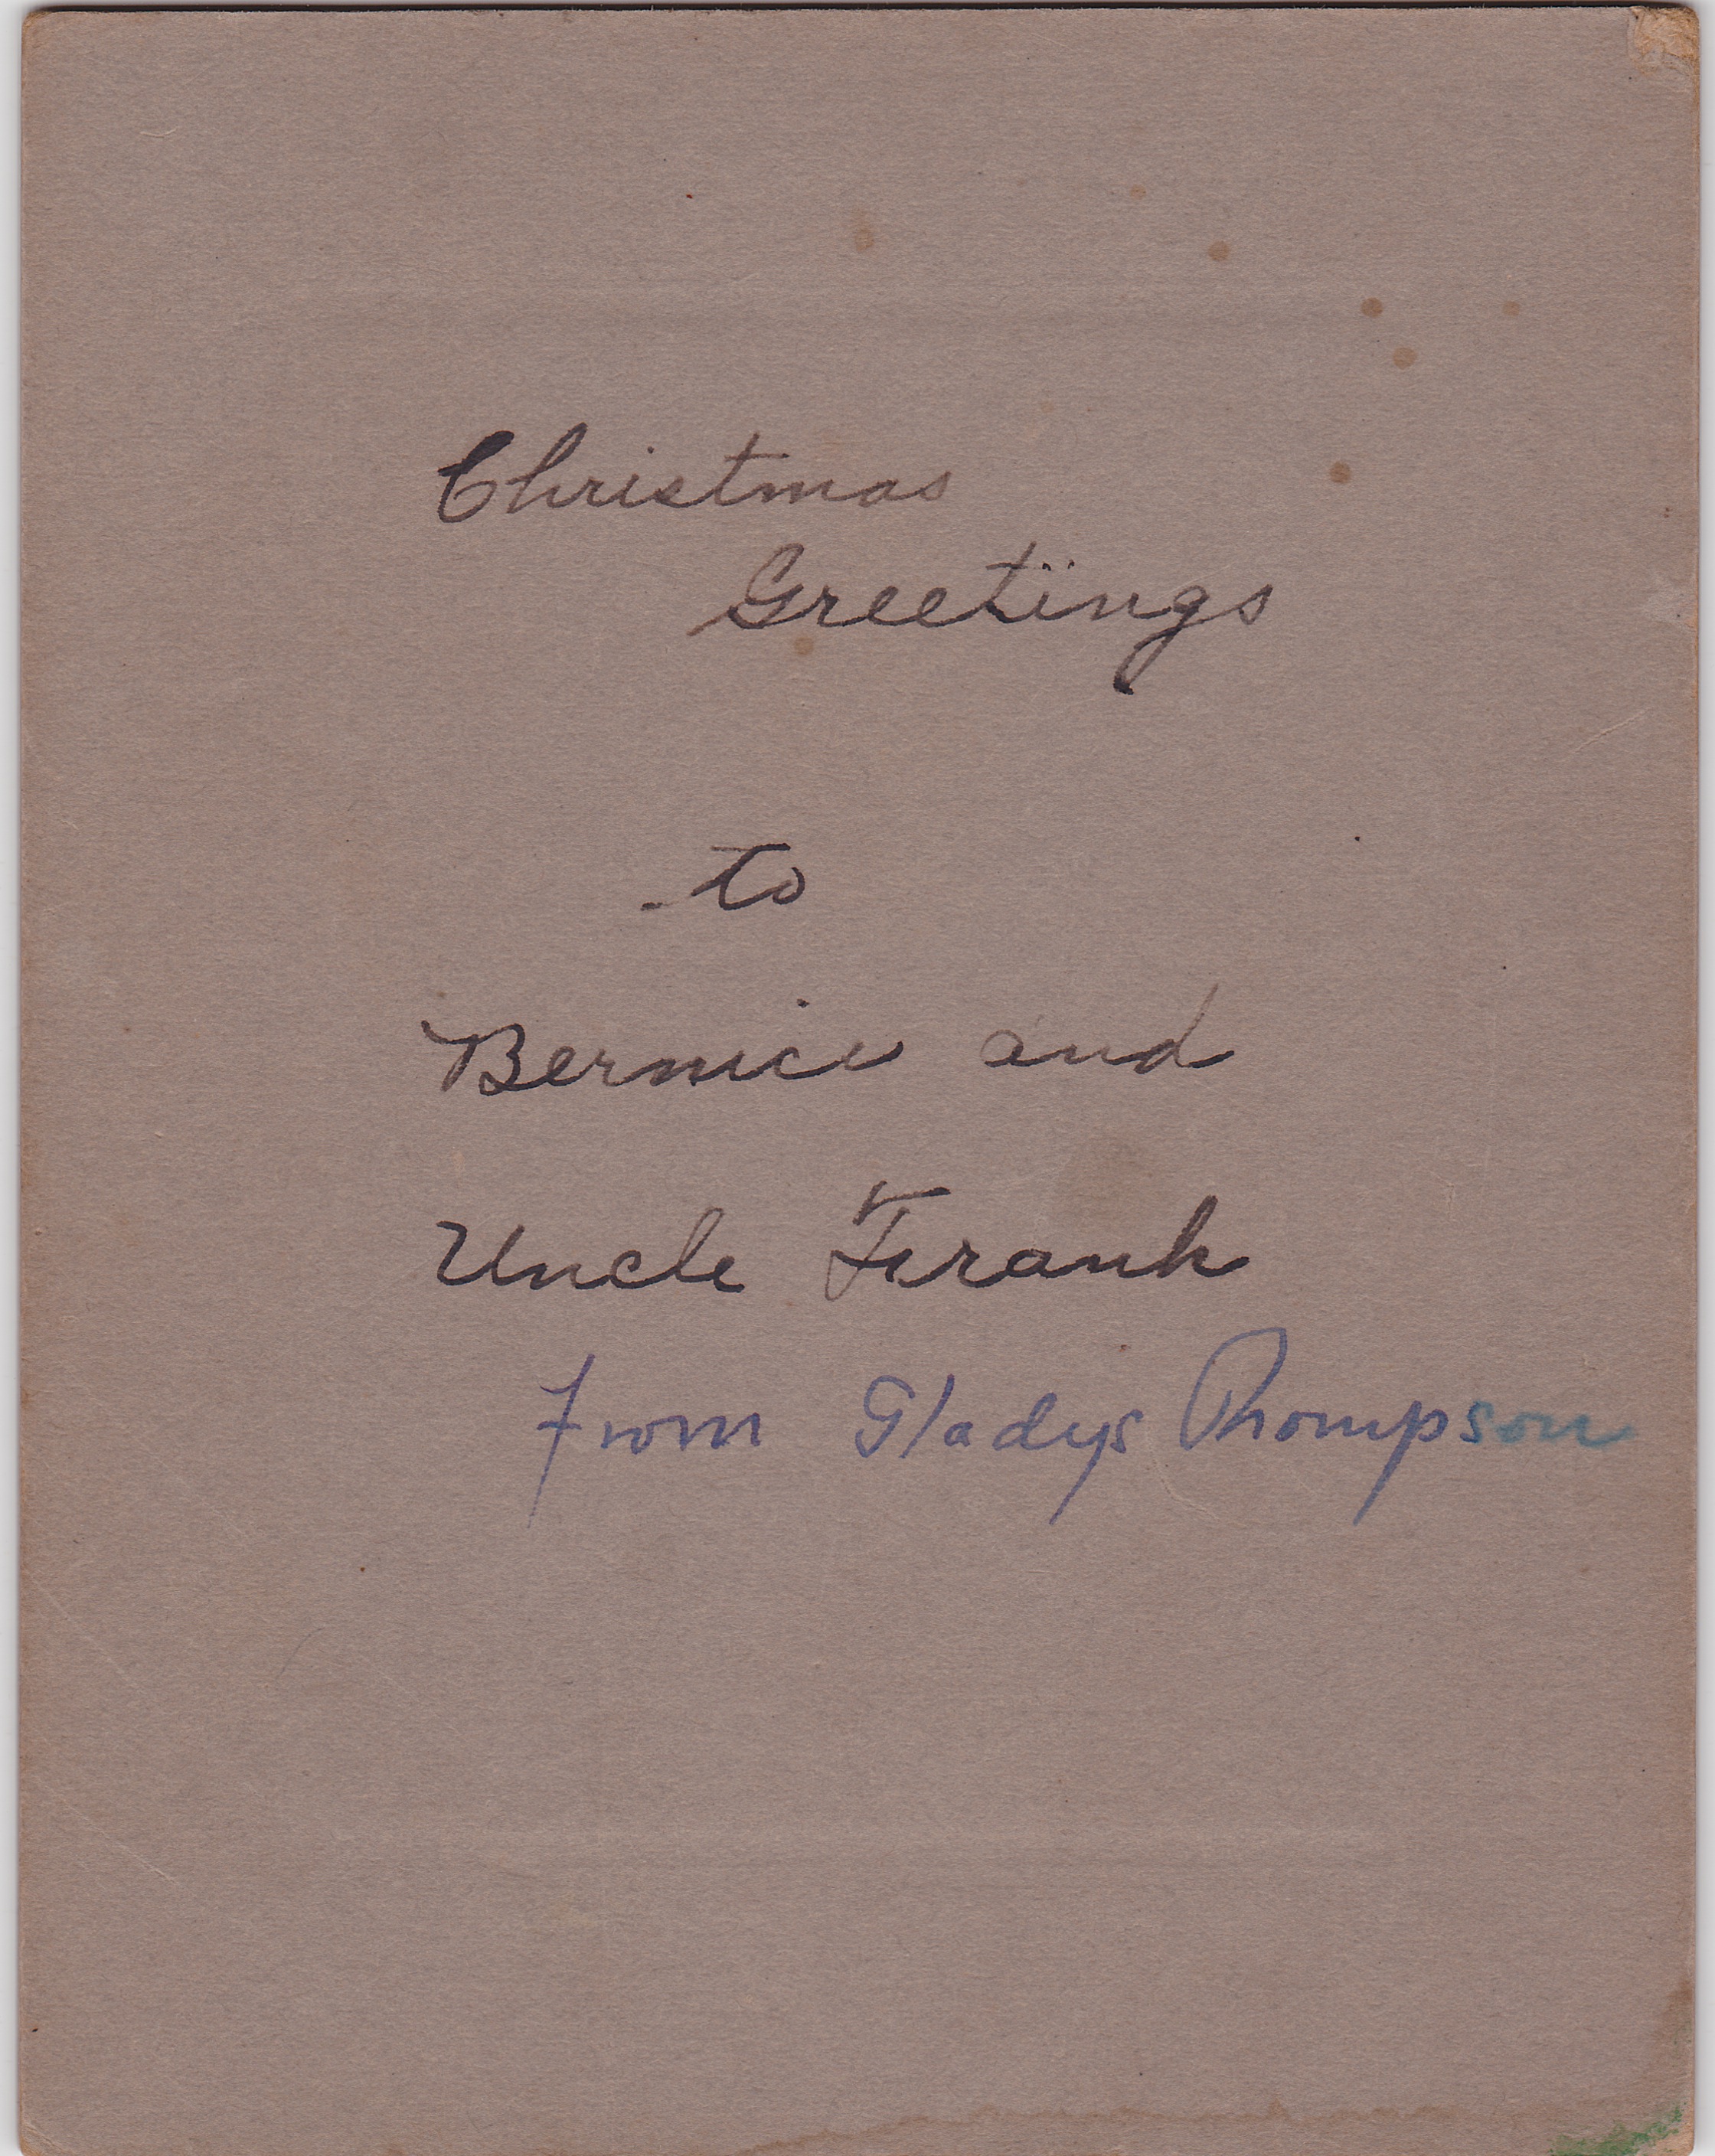 Christmas
Greetings
to
Bernice and
Uncle Frank
From Gladys Thompson